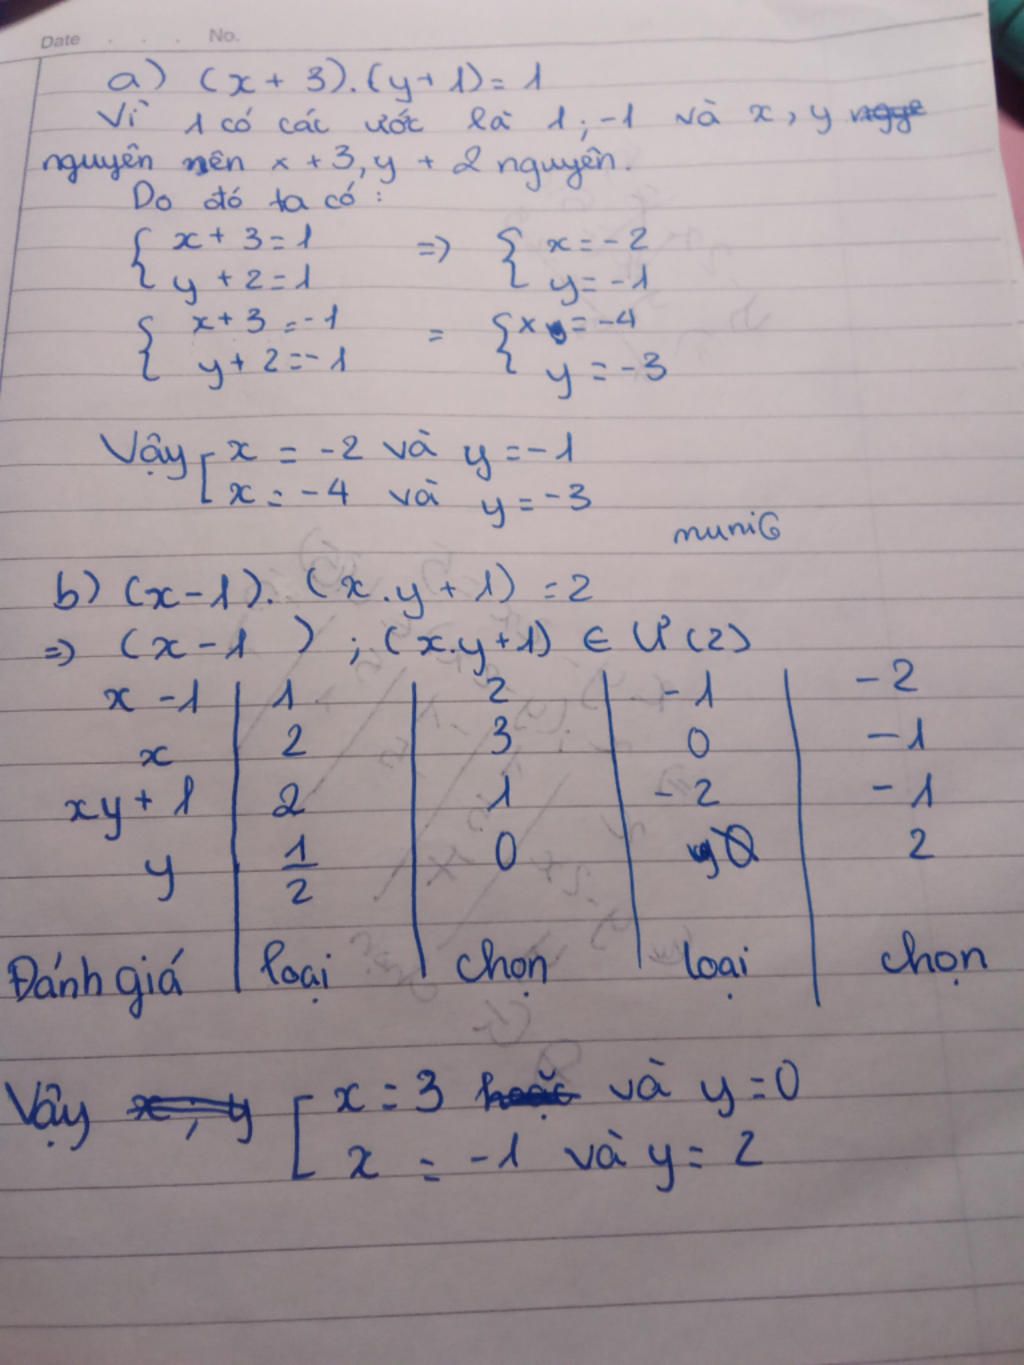 Date . . . . No.
a) (x + 3).(y+1)=1
Vì 1 có các ước là 1;-1 và x, y
nguyên nên x + 3, y + 2 nguyên.
Do đó ta có:
{ x + 3 = 1 => { x = - 2
{ y + 2 = 1 { y = - 1
{ x + 3 = -1 = { x = -4
{ y + 2 = - 1 { y = - 3
Vậy [ x = -2 và y = -1
[ x = -4 và y = -3
muniG
b) (x-1). (x.y+1) = 2
=> (x-1 ) ; (x.y+1) ∈ Ư(2)
x -1 | 1 | 2 | -1 | -2
x | 2 | 3 | 0 | -1
xy + 1 | 2 | 1 | -2 | -1
y | 1/2 | 0 | | 2
Đánh giá | loại | chọn | loại | chọn
Vậy x; y [ x = 3 hoặc và y = 0
[ x = -1 và y = 2